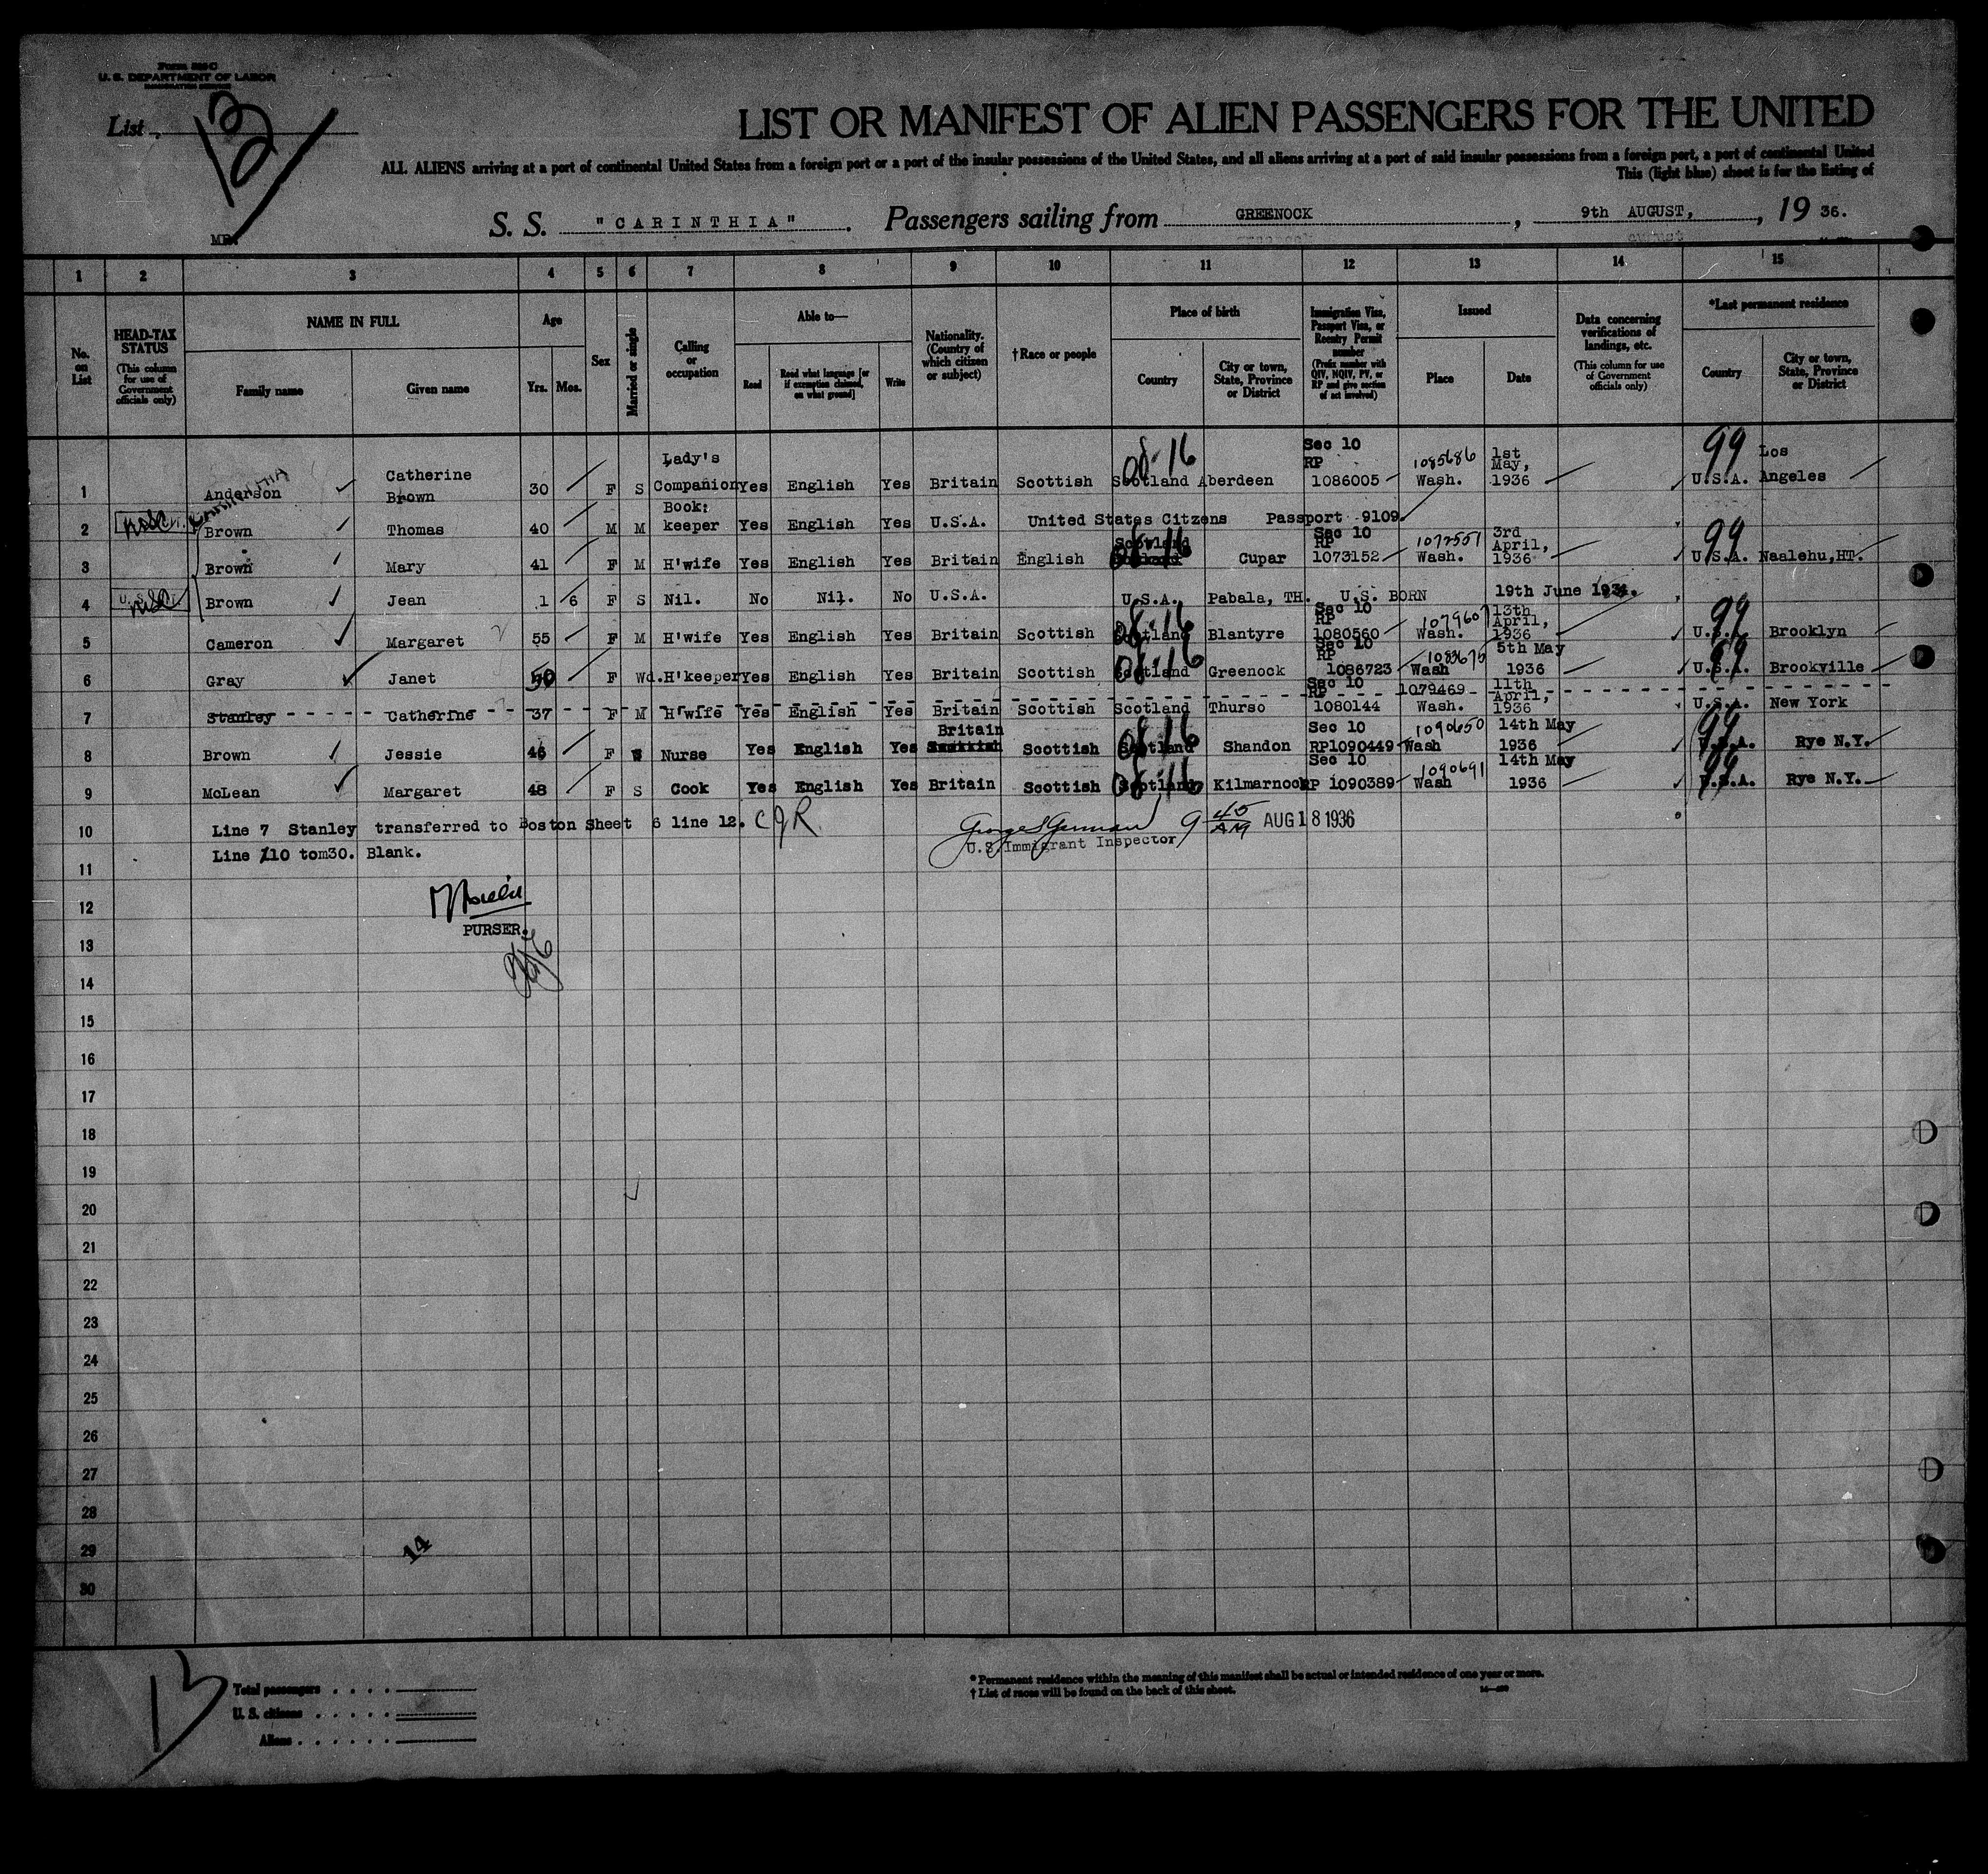 Form 500C
U. S. DEPARTMENT OF LABOR
IMMIGRATION SERVICE
List
LIST OR MANIFEST OF ALIEN PASSENGERS FOR THE UNITED
ALL ALIENS arriving at a port of continental United States from a foreign port or a port of the insular possessions of the United States, and all aliens arriving at a port of said insular possessions from a foreign port, a port of continental United
This (light blue) sheet is for the listing of
S. S. "CARINTHIA". Passengers sailing from GREENOCK, 9th AUGUST, , 19 36.
1 2 3 4 5 6 7 8 9 10 11 12 13 14 15
No. on List
HEAD-TAX STATUS (This column for use of Government officials only)
NAME IN FULL Family name Given name
Age Yrs. Mos.
Sex
Married or single
Calling or occupation
Able to— Read Read what language [or if exemption claimed, on what ground] Write
Nationality. (Country of which citizen or subject)
†Race or people
Place of birth Country City or town, State, Province or District
Immigration Visa, Passport Visa, or Reentry Permit number (Prefix number with QIV, NQIV, PV, or RP and give section of act involved)
Issued Place Date
Data concerning verifications of landings, etc. (This column for use of Government officials only)
*Last permanent residence Country City or town, State, Province or District
1 Anderson Catherine Brown 30 F S Lady's Companion Yes English Yes Britain Scottish 08-16 Scotland Aberdeen Sec 10 RP 1086005 1085686 Wash. 1st May, 1936 99 U.S.A. Los Angeles
2 Brown Thomas 40 M M Book: keeper Yes English Yes U.S.A. United States Citzens Passport 9109.
3 Brown Mary 41 F M H'wife Yes English Yes Britain English Scotland Cupar Sec 10 RP 1073152 1077551 Wash. 3rd April, 1936 99 U.S.A. Naalehu,HT.
4 Brown Jean 1 6 F S Nil. No Nil. No U.S.A. U.S.A. Pabala, TH. U.S. BORN 19th June 1934.
5 Cameron Margaret 55 F M H'wife Yes English Yes Britain Scottish 08-16 Scotland Blantyre Sec 10 RP 1080560 1079607 Wash. 13th April, 1936 99 U.S.A. Brooklyn
6 Gray Janet 50 F Wd. H'keeper Yes English Yes Britain Scottish 08-16 Scotland Greenock Sec 10 RP 1086723 1083675 Wash 5th May 1936 99 U.S.A. Brookville
7 Stanley Catherine 37 F M H'wife Yes English Yes Britain Scottish Scotland Thurso Sec 10 RP 1080144 1079469 Wash. 11th April, 1936 U.S.A. New York
8 Brown Jessie 46 F S Nurse Yes English Yes Britain Scottish Scottish 08-16 Scotland Shandon Sec 10 RP1090449 1090650 Wash 14th May 1936 99 U.S.A. Rye N.Y.
9 McLean Margaret 48 F S Cook Yes English Yes Britain Scottish 08-16 Scotland Kilmarnock Sec 10 RP 1090389 1090691 Wash 14th May 1936 99 U.S.A. Rye N.Y.
10 Line 7 Stanley transferred to Boston Sheet 6 line 12. CJR 9 45 AM AUG 18 1936
U.S. Immigrant Inspector
Line 10 tom30. Blank.
11
12
PURSER.
13
14
15
16
17
18
19
20
21
22
23
24
25
26
27
28
29
14
30
13
Total passengers
U. S. citizens
Aliens
* Permanent residence within the meaning of this manifest shall be actual or intended residence of one year or more.
† List of races will be found on the back of this sheet.